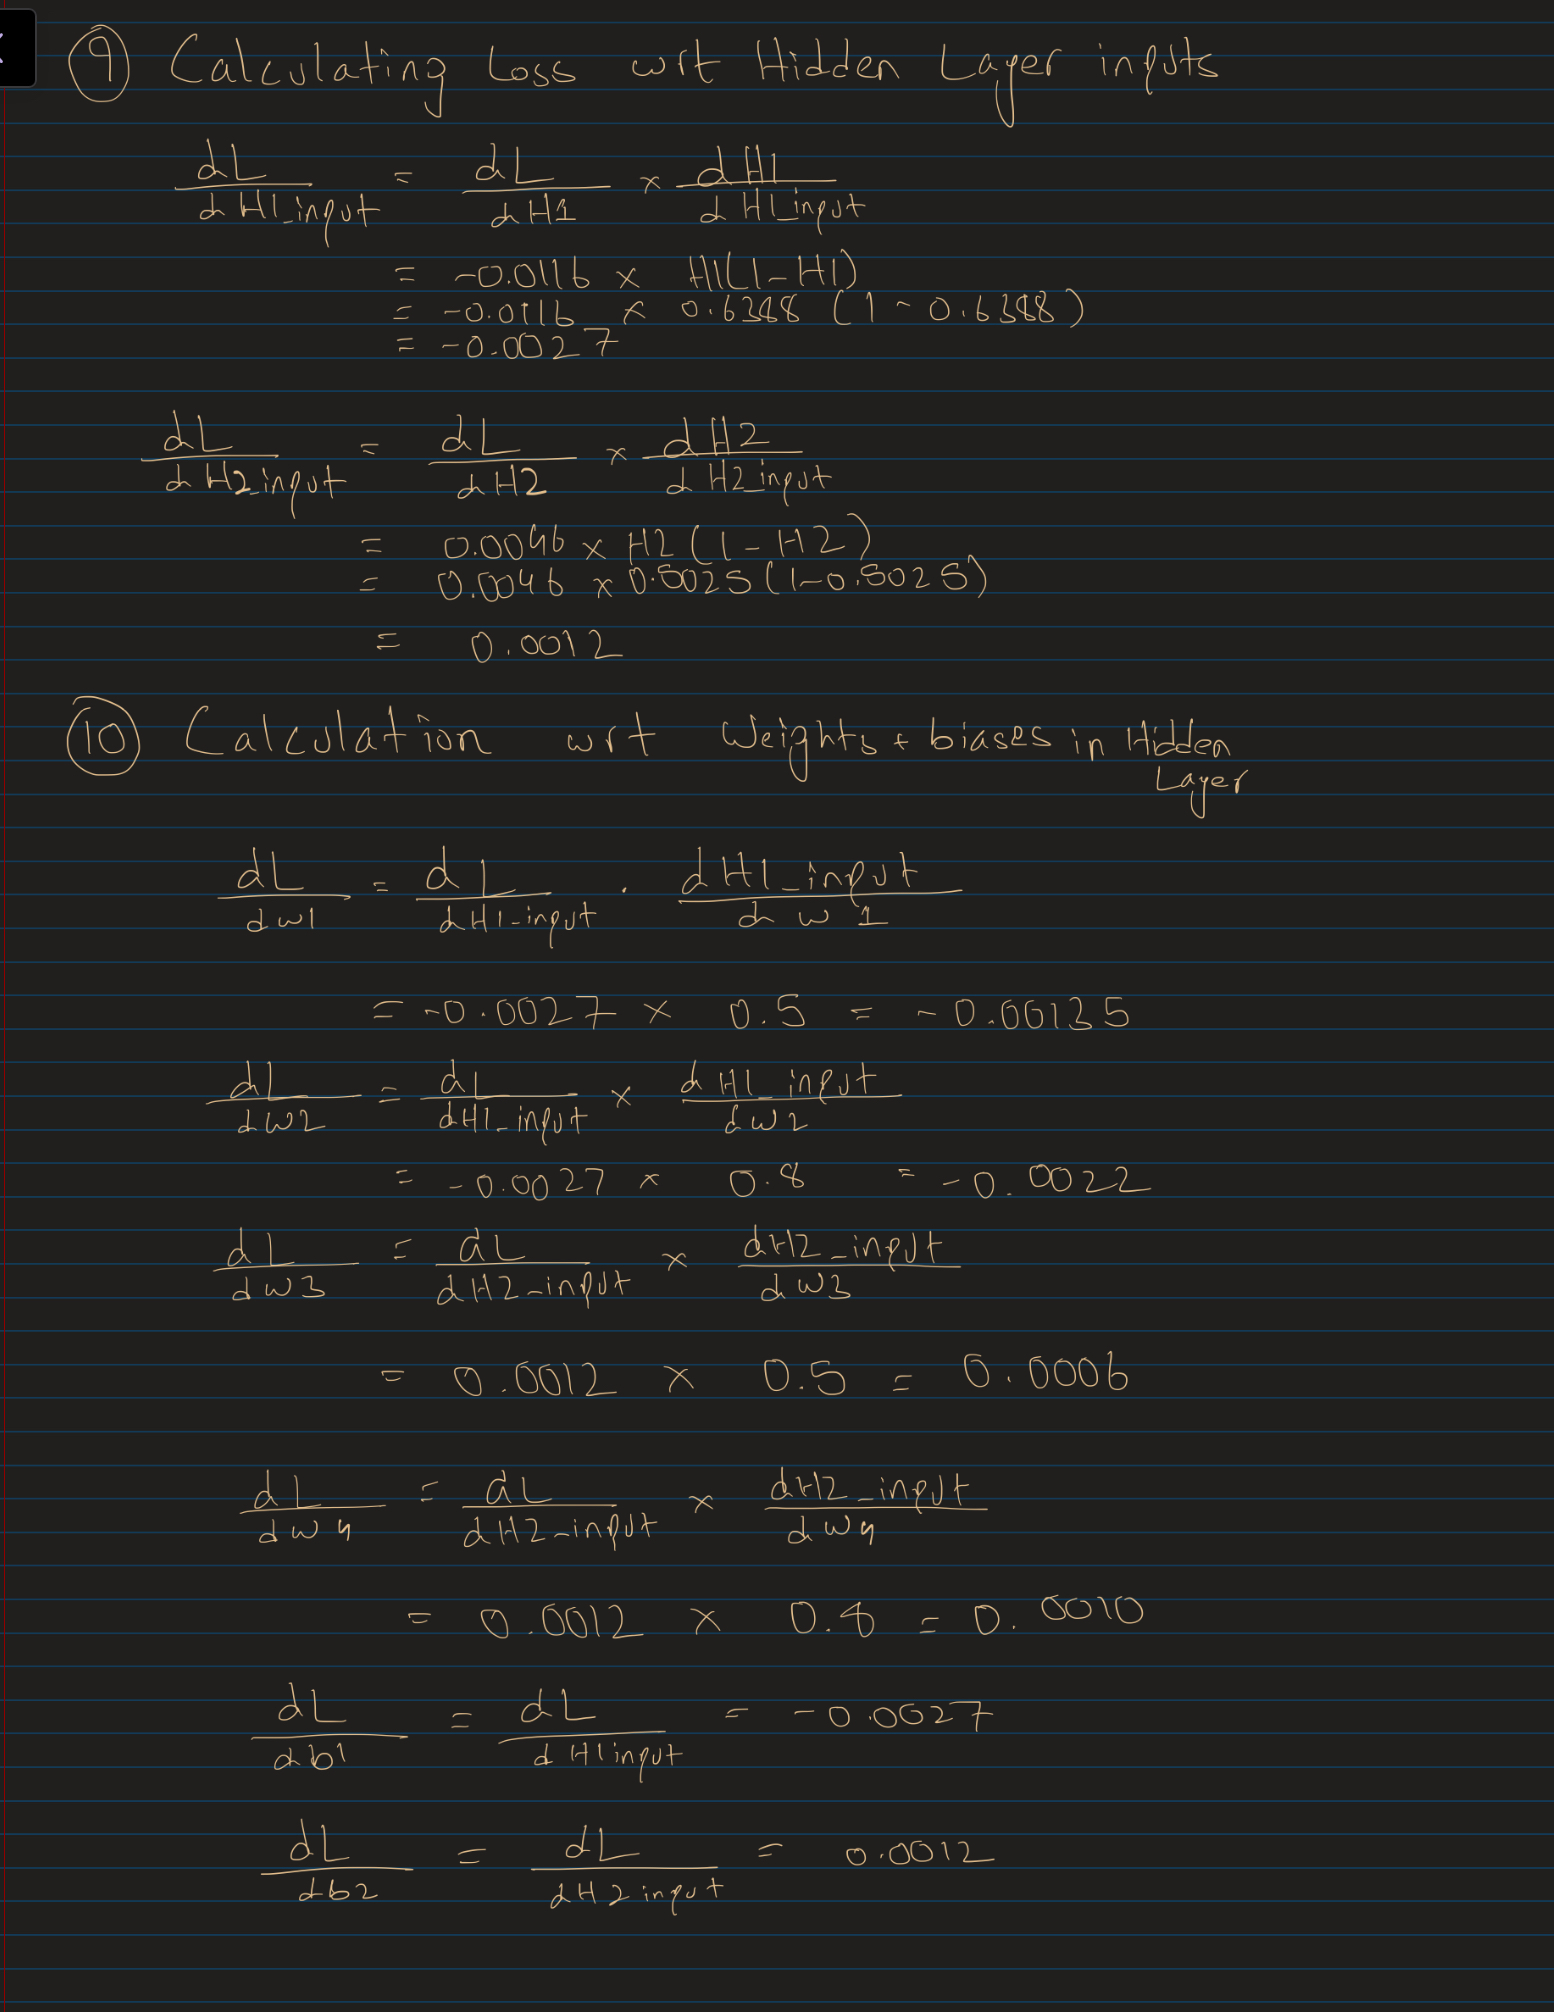 9 Calculating Loss wrt Hidden Layer inputs
dL/dH1_input = dL/dH1 × dH1/dH1_input
= -0.0116 × H1(1-H1)
= -0.0116 × 0.6388 (1 - 0.6388)
= -0.0027
dL/dH2_input = dL/dH2 × dH2/dH2_input
= 0.0046 × H2(1-H2)
= 0.0046 × 0.5025(1-0.5025)
= 0.0012
10 Calculation wrt Weights + biases in Hidden
Layer
dL/dw1 = dL/dH1-input . dH1_input/dw1
= -0.0027 × 0.5 = -0.00135
dL/dw2 = dL/dH1_input × dH1_input/dw2
= -0.0027 × 0.8 = -0.0022
dL/dw3 = dL/dH2-input × dH2_input/dw3
= 0.0012 × 0.5 = 0.0006
dL/dw4 = dL/dH2-input × dH2_input/dw4
= 0.0012 × 0.8 = 0.0010
dL/db1 = dL/dH1input = -0.0027
dL/db2 = dL/dH2input = 0.0012